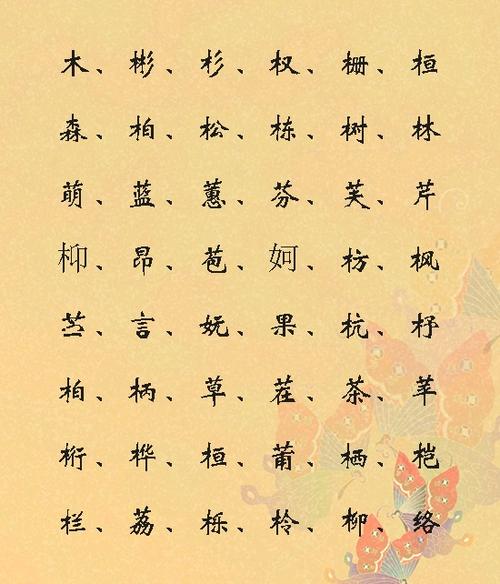 木、彬、杉、杈、栅、桓
森、柏、松、栋、树、林
萌、蓝、蕙、芬、芙、芹
枊、昂、苞、妸、枋、枫
苎、言、妩、果、杭、杼
柏、柄、草、茬、茶、苹
桁、桦、桓、莆、栖、桤
栏、荔、栎、柃、柳、络